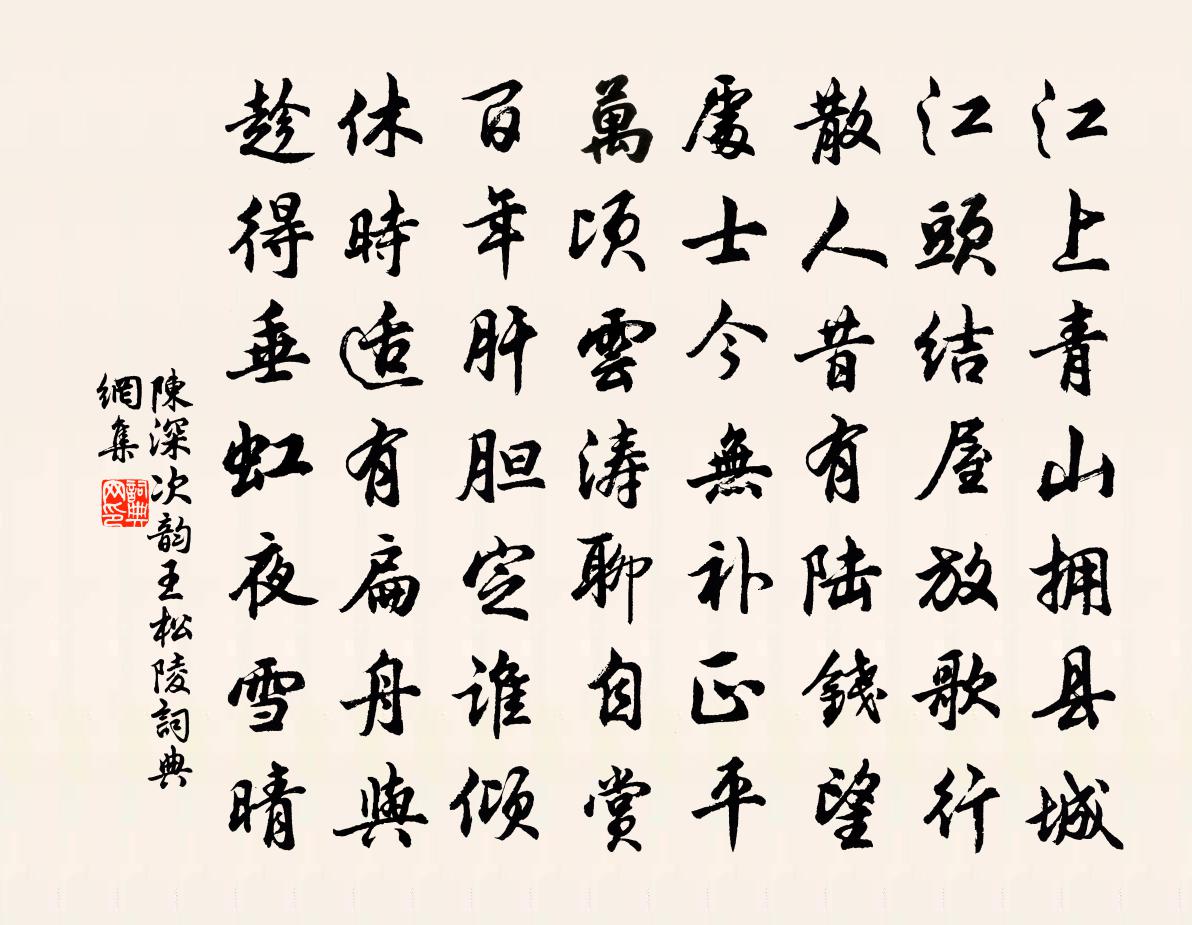 江上青山拥县城
江頭结屋放歌行
散人昔有陆錢望
處士今無补正平
萬顷雲涛聊自賞
百年肝胆定谁倾
休時适有扁舟興
趁得垂虹夜雪晴
陳深次韵王松陵詞典
網集
詞典
网印